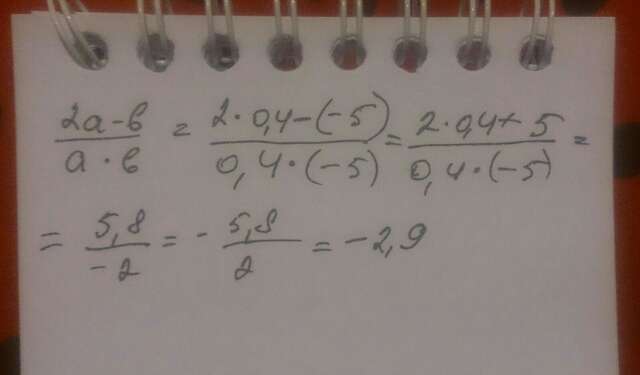 (2a-b)/(a·b) = (2·0,4-(-5))/(0,4·(-5)) = (2·0,4+5)/(0,4·(-5)) =
= 5,8/-2 = -5,8/2 = -2,9